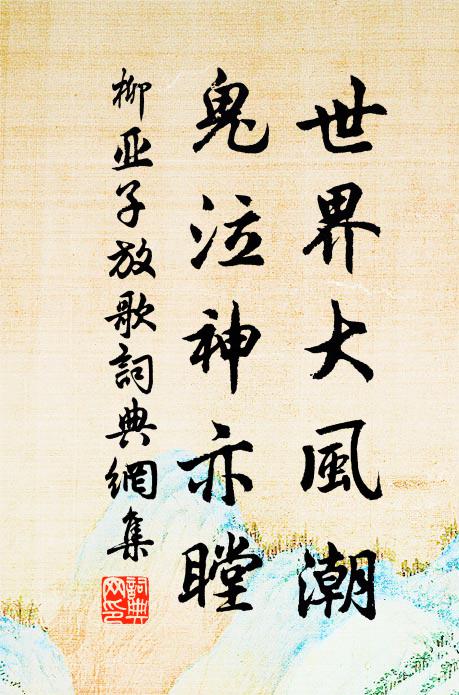 世界大風潮
鬼泣神亦瞠
柳亚子放歌詞典網集
詞典